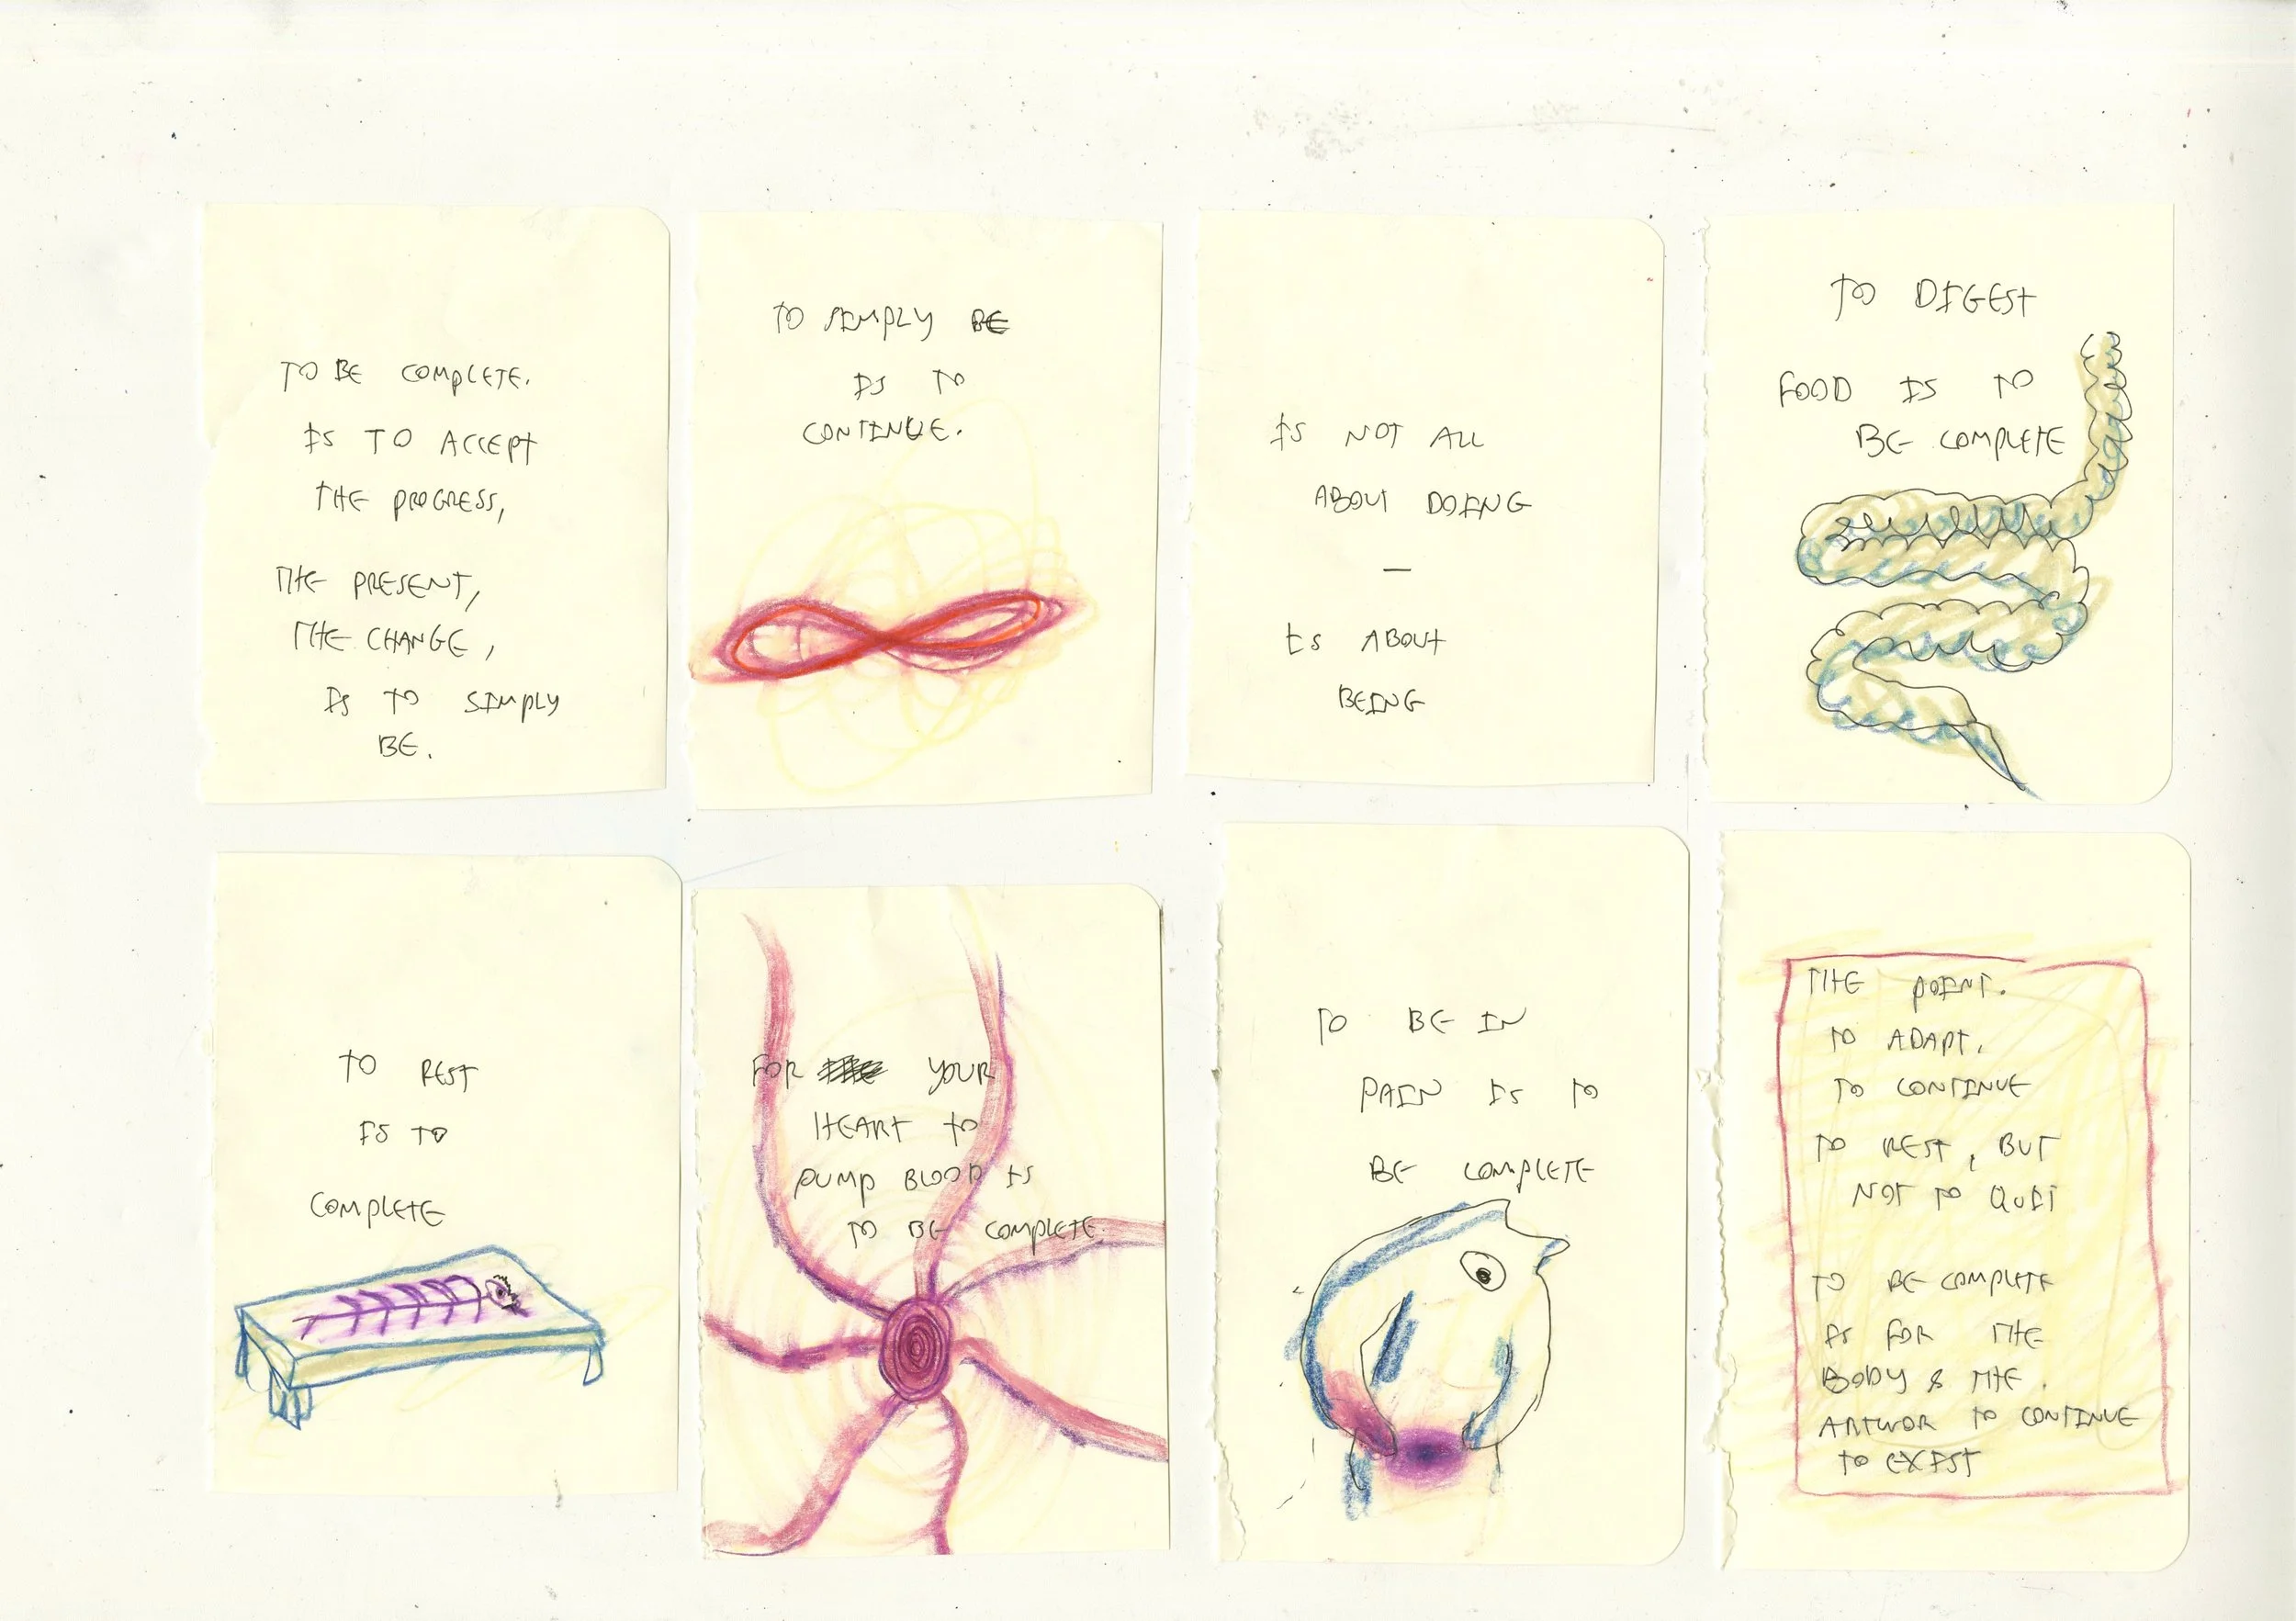 TO BE COMPLETE.
IS TO ACCEPT
THE PROGRESS,
THE PRESENT,
THE CHANGE,
IS TO SIMPLY
BE.
TO SIMPLY BE
IS TO
CONTINUE.
IS NOT ALL
ABOUT DOING
—
Is ABOUT
BEING
TO DIGEST
FOOD IS TO
BE COMPLETE
TO REST
IS TO
COMPLETE
FOR YOUR
HEART TO
PUMP BLOOD IS
TO BE COMPLETE
TO BE IN
PAIN IS TO
BE COMPLETE
THE POINT.
TO ADAPT.
TO CONTINUE
TO REST, BUT
NOT TO QUIT
TO BE COMPLETE
IS FOR THE
BODY & THE.
ARTWOR TO CONTINUE
TO EXIST